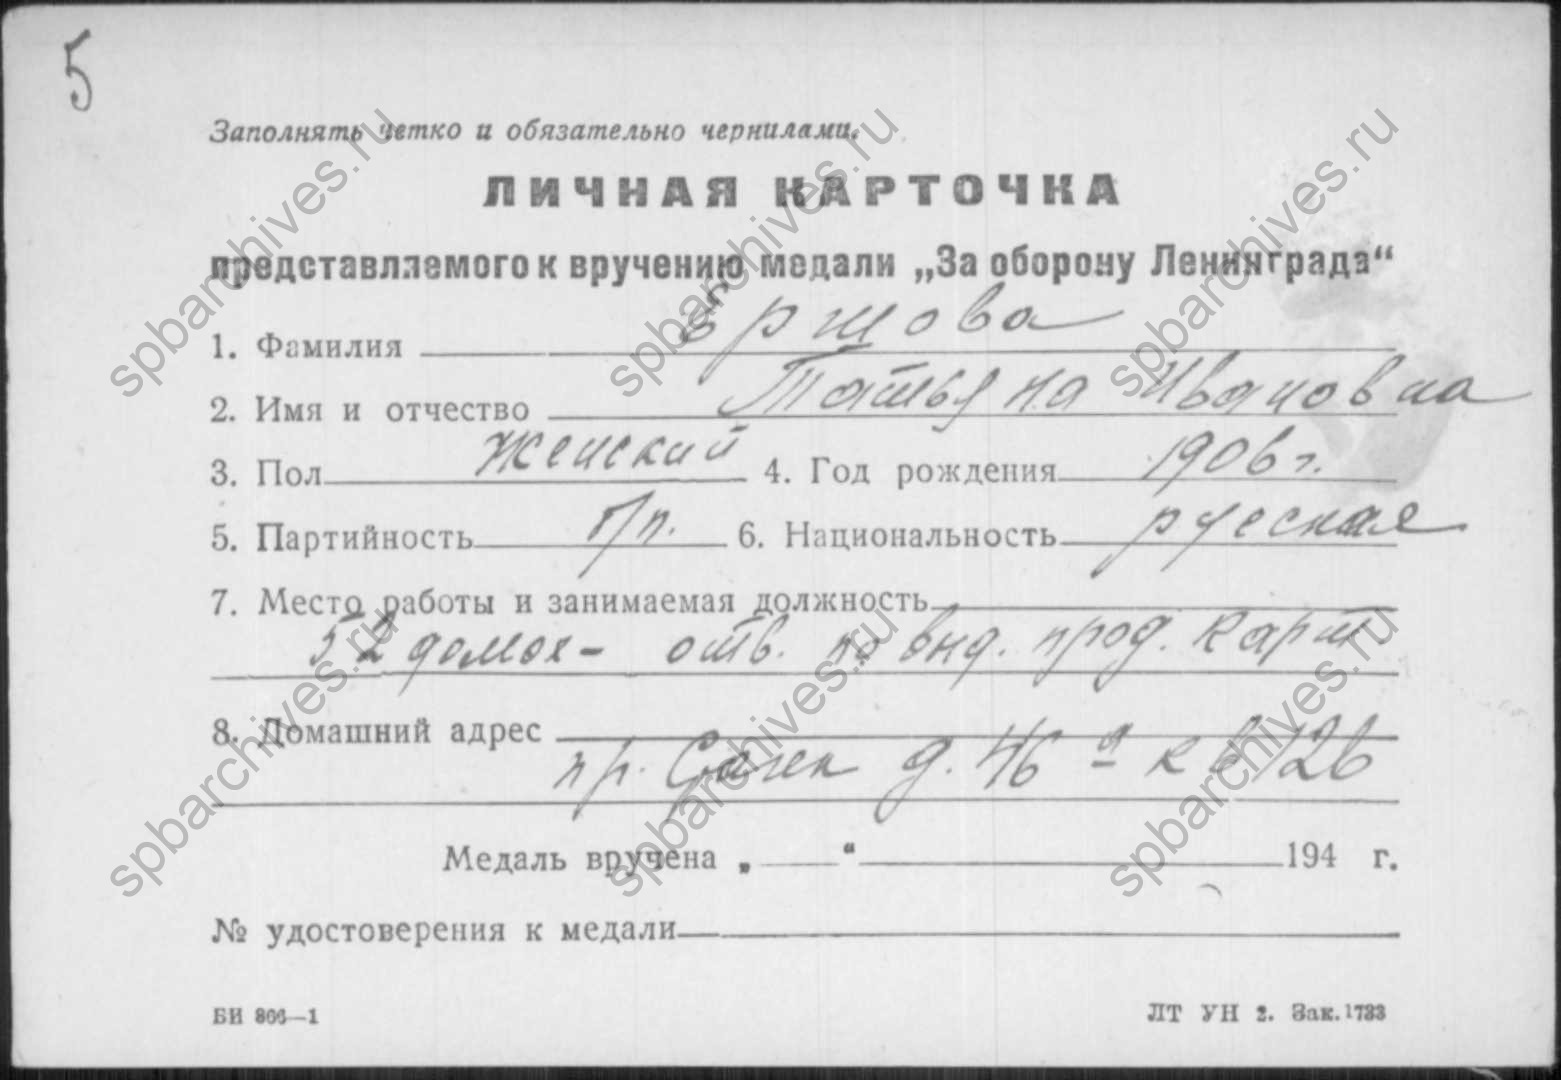 5
Заполнять четко и обязательно чернилами.
ЛИЧНАЯ КАРТОЧКА
представляемого к вручению медали „За оборону Ленинграда“
1. Фамилия Ершова
2. Имя и отчество Татьяна Ивановна
3. Пол Женский 4. Год рождения 1906 г.
5. Партийность б/п. 6. Национальность русская
7. Место работы и занимаемая должность
52 домох- отв. по выд. прод. карт.
8. Домашний адрес
пр. Стачек д. 46 а кв 126
Медаль вручена „ “ 194 г.
№ удостоверения к медали
БИ 866—1 ЛТ УН 2. Зак. 1733
spbarchives.ru
spbarchives.ru
spbarchives.ru
spbarchives.ru
spbarchives.ru
spbarchives.ru